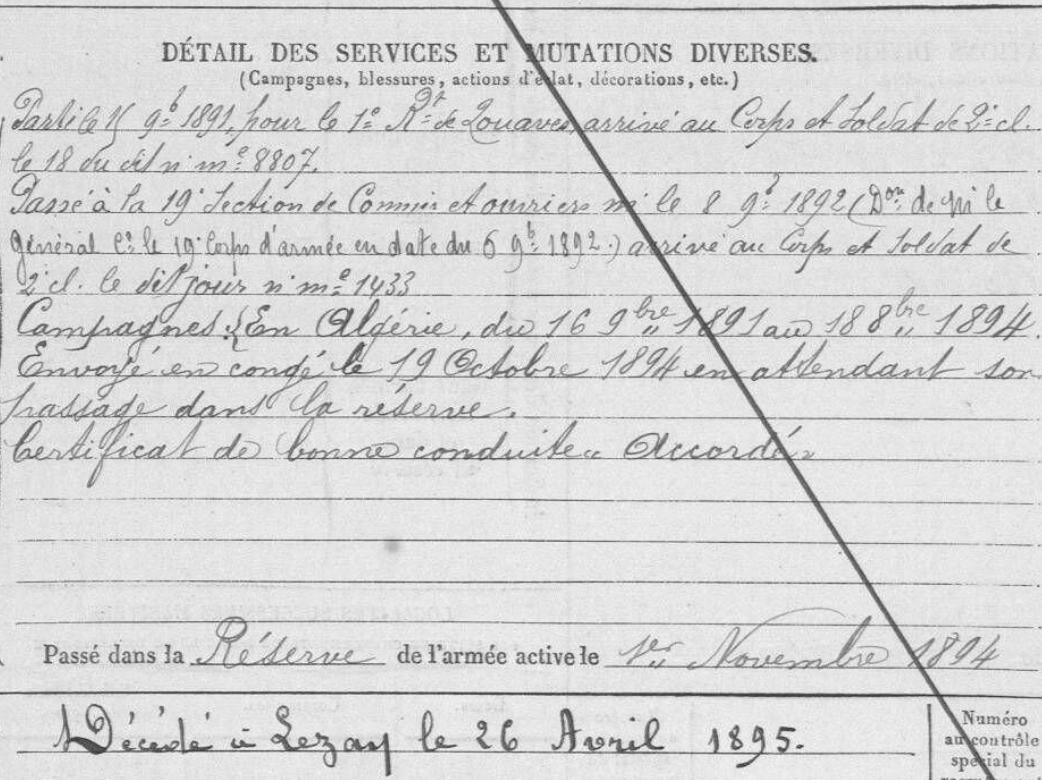 DÉTAIL DES SERVICES ET MUTATIONS DIVERSES.
(Campagnes, blessures, actions d'éclat, décorations, etc.)
Parti le 15 9b 1891, pour le 1e Rgt de Zouaves, arrivé au Corps et Soldat de 2e cl.
le 18 du dit n° me 8807.
Passé à la 19e Section de Commis et ouvriers m le 8 9b 1892 (Don de Mr le
général Ct le 19e Corps d'armée en date du 6 9b 1892.) arrivé au Corps et Soldat de
2e cl. le dit jour n° me 1433
Campagnes: { En Algérie, du 16 9bre 1891 au 18 8bre 1894.
Envoyé en congé le 19 Octobre 1894 en attendant son
passage dans la réserve.
Certificat de bonne conduite « Accordé »
Passé dans la Réserve de l'armée active le 1er Novembre 1894
Décédé à Lezay le 26 Avril 1895.
Numéro
au contrôle
spécial du